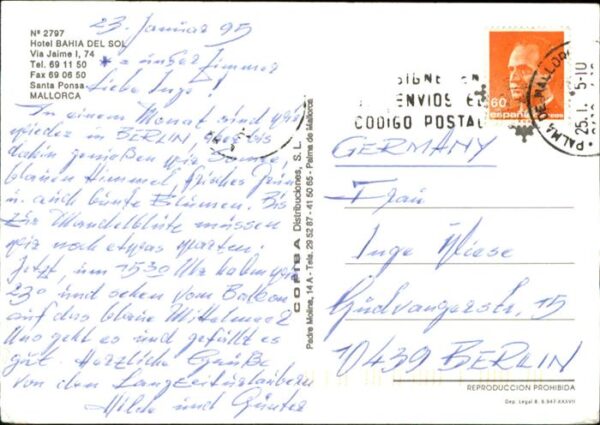 23. Januar 95
Nº 2797
Hotel BAHIA DEL SOL
Via Jaime I, 74
Tel. 69 11 50
Fax 69 06 50
Santa Ponsa
MALLORCA
* = unser Zimmer
Liebe Inge!
In einem Monat sind wir
wieder in BERLIN, bis
dahin genießen wir Sonne,
blauen Himmel, frisches Grün
u. auch bunte Blumen. Bis
zur Mandelblüte müssen
wir noch etwas warten.
Jetzt, um 15 30 Uhr haben wir
23° und sehen vom Balkon
auf das blaue Mittelmeer.
Uns geht es und gefällt es
gut. Herzliche Grüße
von den Langzeiturlaubern
Hilde und Günter
COPIBA Distribuciones, S. L.
Padre Molina, 14 A - Tels. 29 52 67 - 41 50 65 - Palma de Mallorca
SIGNE EN
ENVIOS E
CODIGO POSTAL
60
españa
PALMA DE MALLOR
25. 1. 5-10
GERMANY
Frau
Inge Wiese
Gudvangerstr. 15
10439 BERLIN
REPRODUCCION PROHIBIDA
Dep. Legal B. 9.947-XXXVII